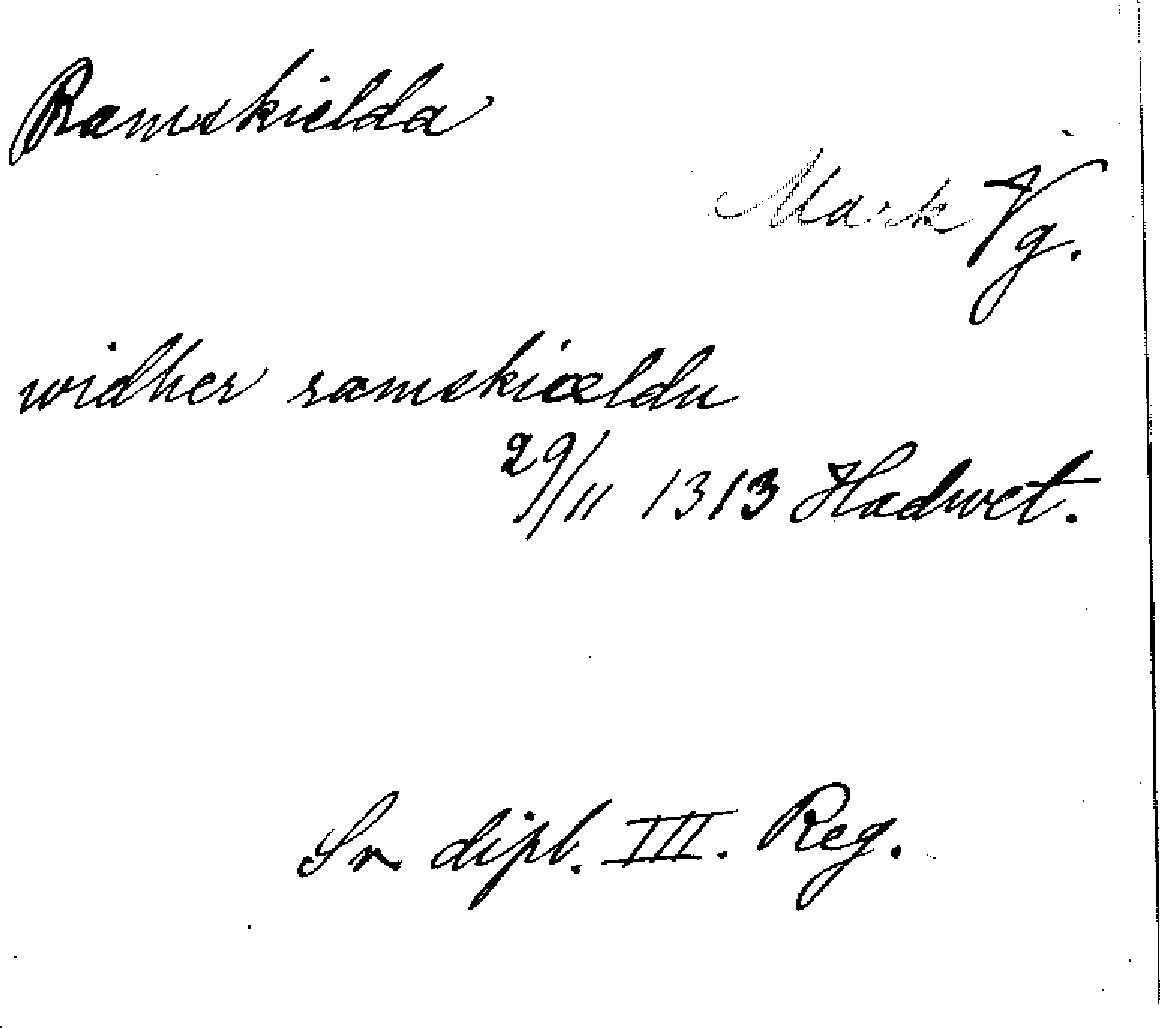 Ramskielda
Mark Vg.
widher ramskiældu
29/11 1313 Hadwet.
Sv dipl. III. Reg.